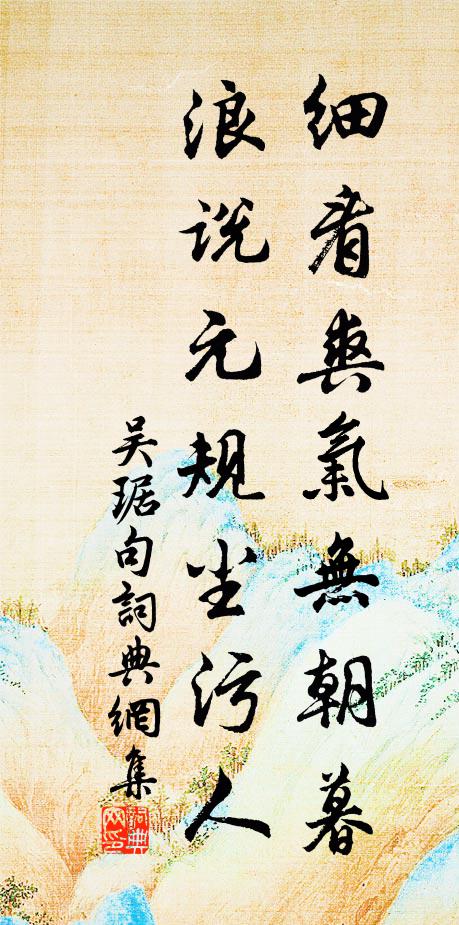 細看爽氣無朝暮
浪说元规尘污人
吴琚句詞典網集
詞典网印